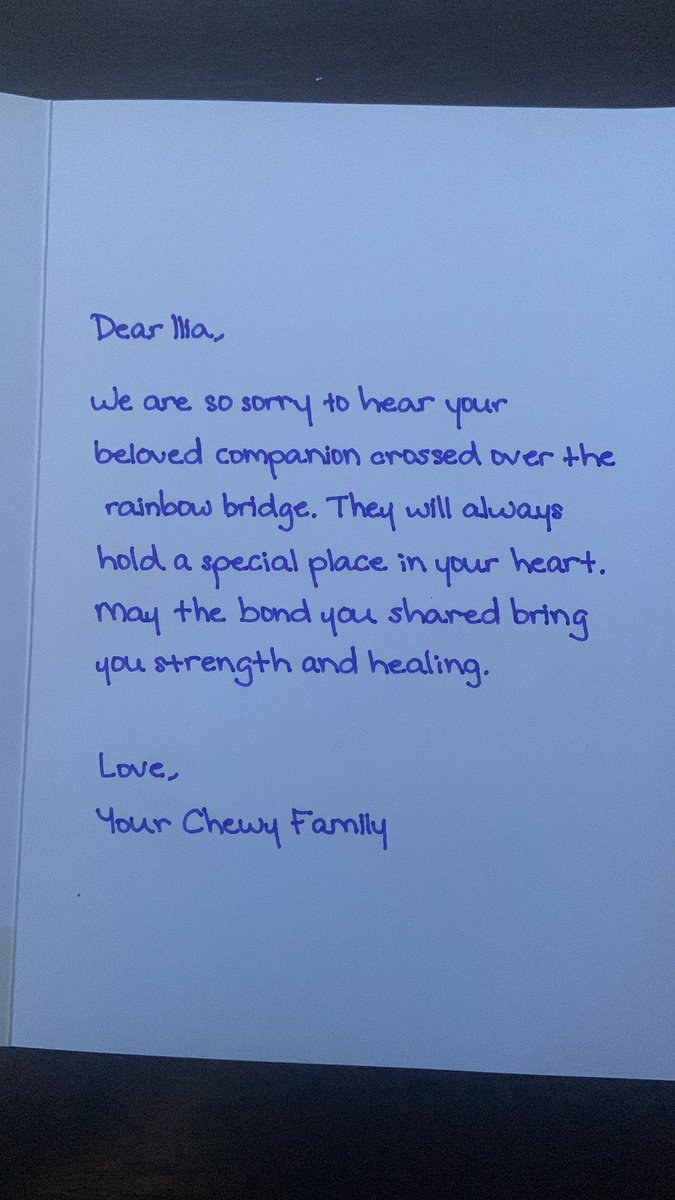 Dear Illia,
We are so sorry to hear your
beloved companion crossed over the
rainbow bridge. They will always
hold a special place in your heart.
May the bond you shared bring
you strength and healing.
Love,
Your Chewy Family